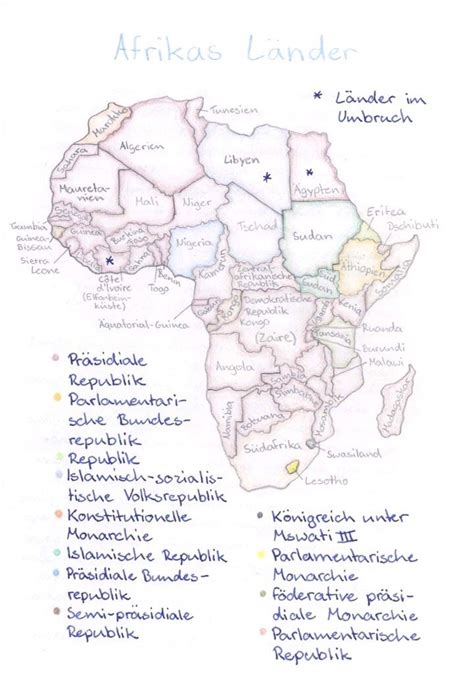 Afrikas Länder
* Länder im
Umbruch
Tunesien
Marokko
Algerien
Libyen
*
*
Ägypten
Sahara
Maureta-
nien
Mali
Niger
Tschad
Sudan
Eritrea
Dschibuti
Senegal
Gambia
Guinea-
Bissau
Guinea
Sierra
Leone
*
Burkina
Faso
Ghana
Côte
d'Ivoire
(Elfenbein-
küste)
Benin
Togo
Nigeria
Kamerun
Zentral-
afrikanische
Republik
Süd-
sudan
Äthiopien
Somalia
Äquatorial-Guinea
Gabun
Kongo
Demokratische
Republik
Kongo
(Zaire)
Uganda
Kenia
Ruanda
Burundi
Tansania
Malawi
Angola
Sambia
Simbabwe
Mosambik
Madagaskar
Namibia
Botswana
Südafrika
Swasiland
Lesotho
Präsidiale
Republik
Parlamentari-
sche Bundes-
republik
Republik
Islamisch-sozialis-
tische Volksrepublik
Konstitutionelle
Monarchie
Islamische Republik
Präsidiale Bundes-
republik
Semi-präsidiale
Republik
Königreich unter
Mswati III
Parlamentarische
Monarchie
föderative präsi-
diale Monarchie
Parlamentarische
Republik